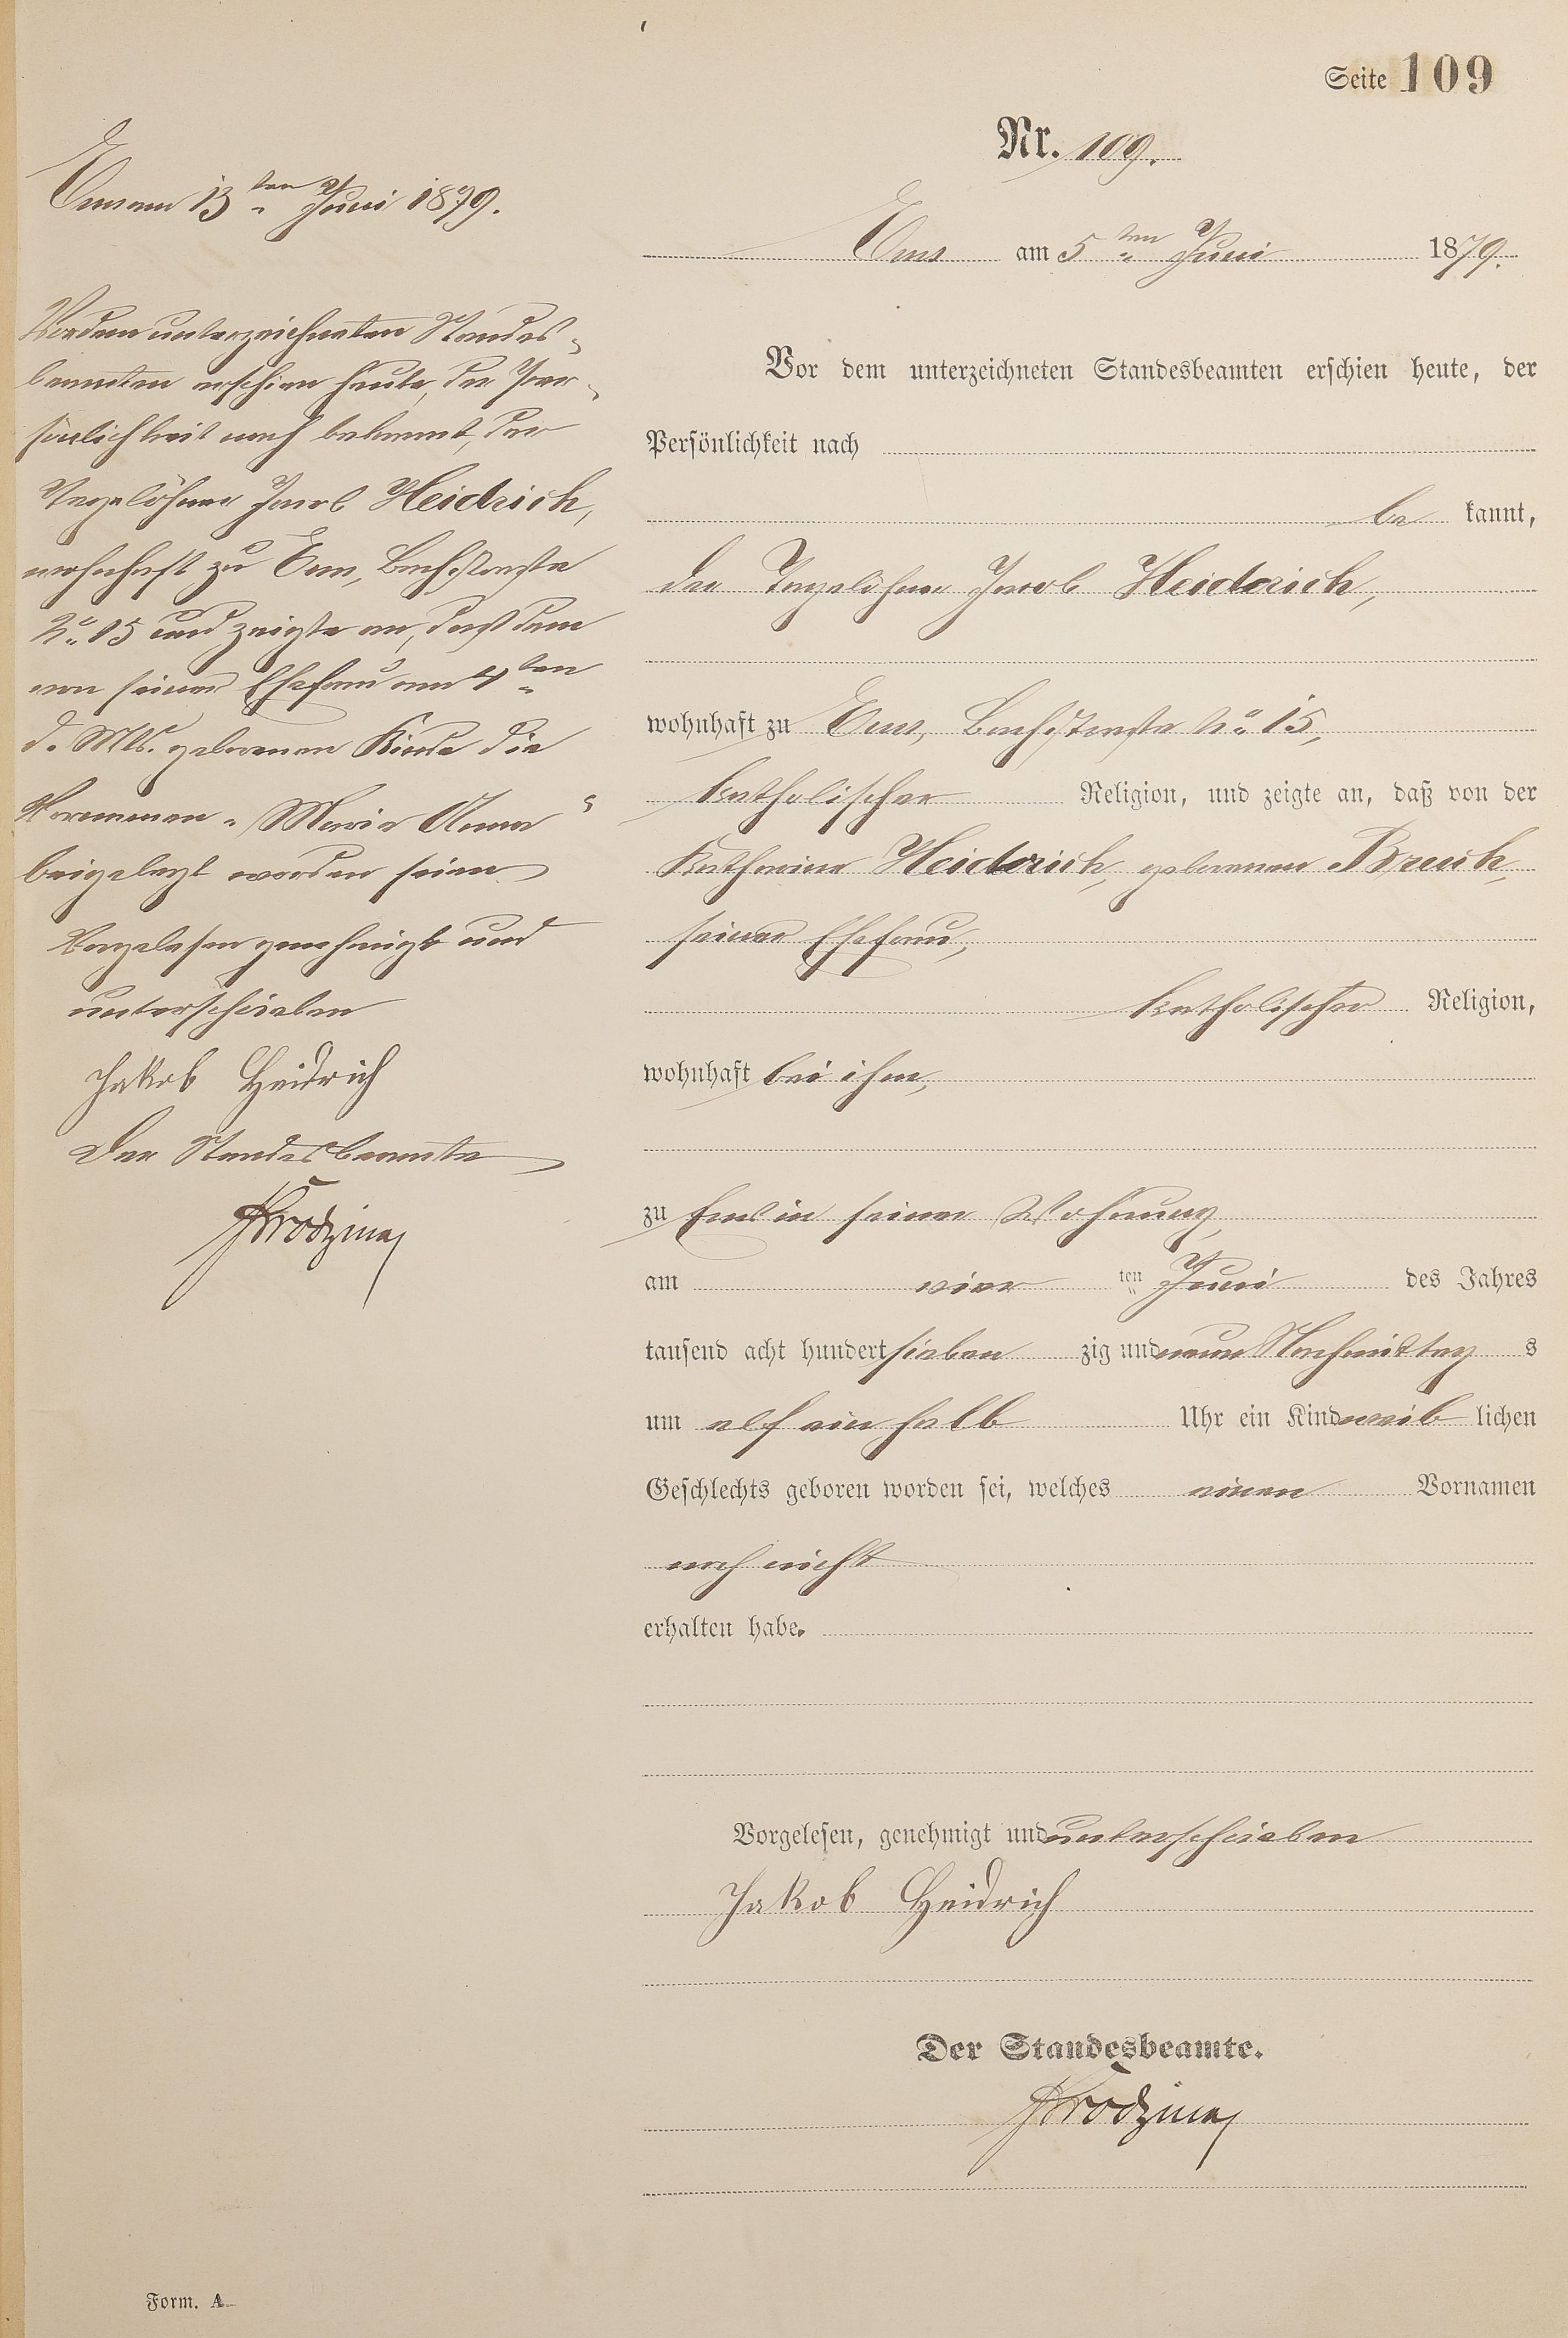 Seite 109
Nr. 109.
Ems am 5ten Juni 1879.
Vor dem unterzeichneten Standesbeamten erschien heute, der
Persönlichkeit nach
be kannt,
der Tagelöhner Jacob Heidrich,
wohnhaft zu Ems, Bachstraße No. 15,
katholischer Religion, und zeigte an, daß von der
Katharina Heidrich, geborenen Breuk,
seiner Ehefrau,
katholischer Religion,
wohnhaft bei ihm,
zu Ems in seiner Wohnung,
am vier ten Juni des Jahres
tausend acht hundert sieben zig und neun Nachmittag s
um elf ein halb Uhr ein Kind weib lichen
Geschlechts geboren worden sei, welches einen Vornamen
noch nicht
erhalten habe.
Vorgelesen, genehmigt und unterschrieben
Jakob Heidrich
Der Standesbeamte.
Ems am 13ten Juni 1879.
Vor dem unterzeichneten Standes-
beamten erschien heute, der Per-
sönlichkeit nach bekannt, der
Tagelöhner Jacob Heidrich,
wohnhaft zu Ems, Bachstraße
No. 15 und zeigte an, daß dem
von seiner Ehefrau am 4ten
d. Mts. geborenen Kinde die
Vornamen „Maria Anna“
beigelegt worden seien
Vorgelesen genehmigt und
unterschrieben
Jakob Heidrich
Der Standesbeamte
Form. A.